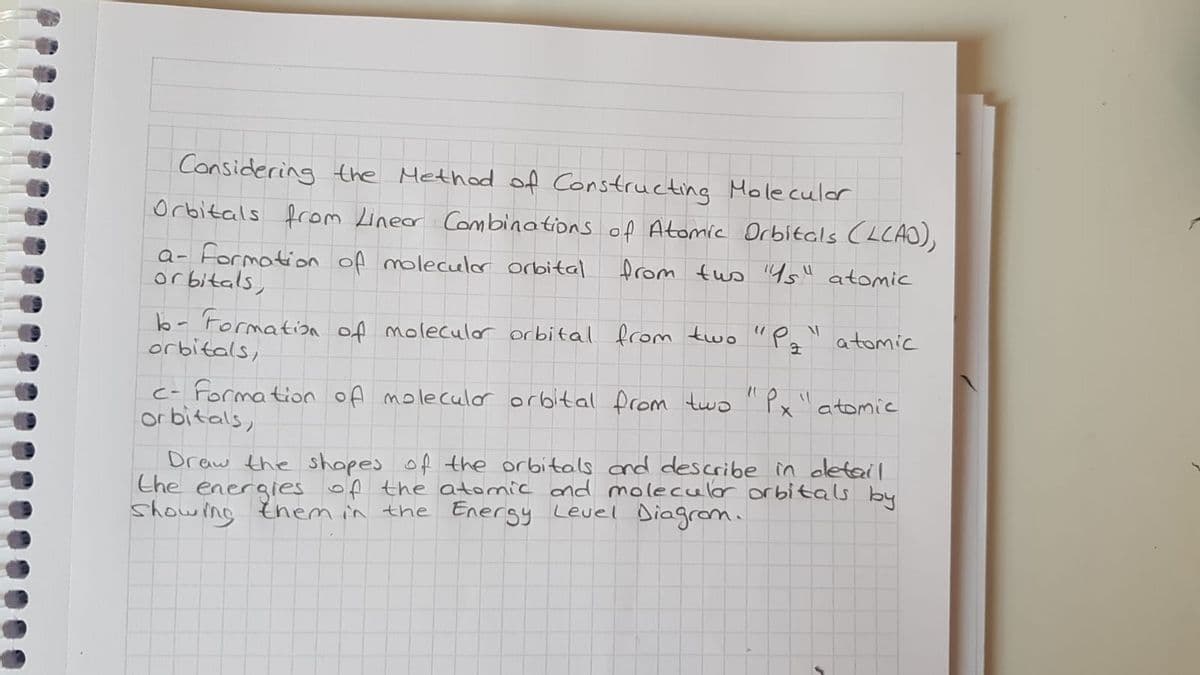 Considering the Method of Constructing Molecular
Orbitals from Linear Combinations of Atomic Orbitals (LCAO),
a- Formation of molecular orbital from two "1s" atomic
orbitals,
b- Formation of molecular orbital from two "Pz" atomic
orbitals,
c- Formation of molecular orbital from two "Px" atomic
orbitals,
Draw the shapes of the orbitals and describe in detail
the energies of the atomic and molecular orbitals by
showing them in the Energy Level Diagram.